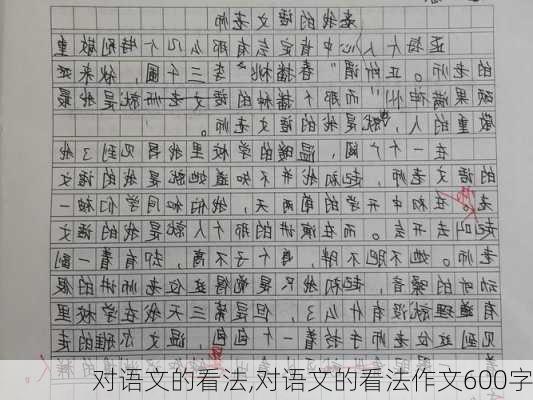 我的语文老师
人心中肯定会有那么几个特别敬重
的老师。正所谓“春播桃李三千圃，秋来
硕果满神州”而那个播种的语文老师就是我最
敬重的人，就是我的语文老师。
在一个广阔，温暖的学校里我见到了我
的语文老师，起初我并不知道她就是我的语文
老。在初中开学的前两天，我们和同学们被一
起叫去开会。而在演讲的那个人就是我的语文
老师。她不肥不胖，个子不高，却有着一副
动听的嗓音，起初我只是觉得这位老师讲的很
有道理就没有什么了，但是第三天我在学校里
见到这位老师手拎着一个包，温文尔雅的走
对语文的看法,对语文的看法作文600字